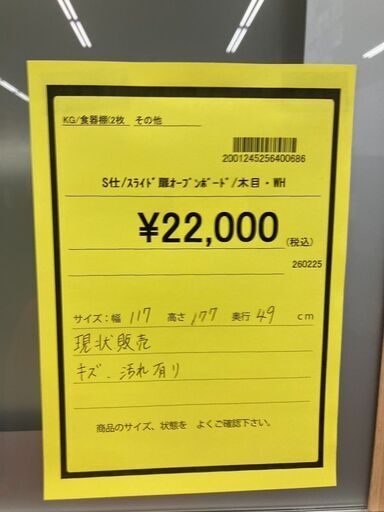 KG/食器棚(2枚 その他
2001245256400686
S仕/ｽﾗｲﾄﾞ扉ｵｰﾌﾟﾝﾎﾞｰﾄﾞ/木目・WH
¥22,000(税込)
260225
サイズ：幅 117 高さ 177 奥行 49 cm
現状販売
キズ、汚れ有り
商品のサイズ、状態を よくご確認下さい。